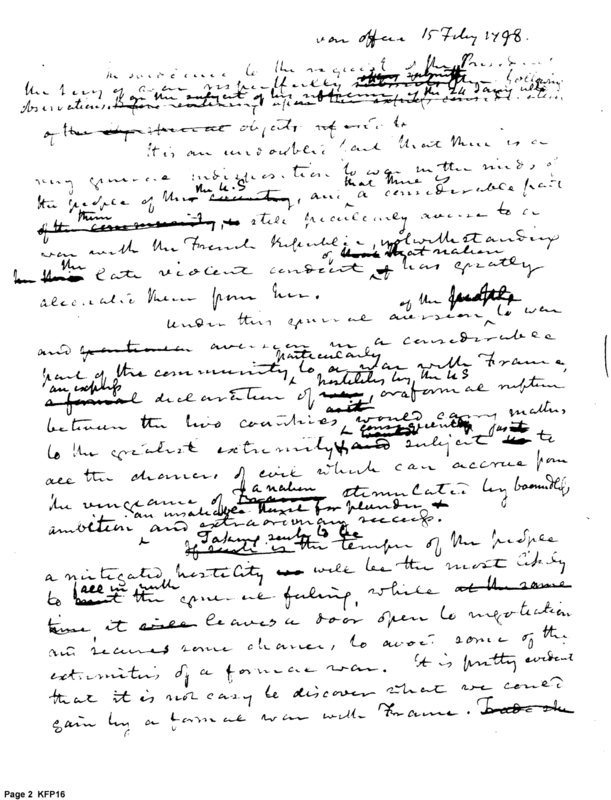 war office 15 Feby 1798.
In obedience to the request of the President
the Secy of war respectfully submits the following
observations. upon the subject of his of the 24 Jany ulto
of the objects referred to
It is an undoubted fact that there is a
very general indisposition to war in the minds of
the people of the U.S country, and that there is a considerable part
of them of the community, is still peculiarly averse to a
war with the French Republic, notwithstanding
the late violent conduct of that nation has greatly
alienated them from her.
Under this general aversion of the people to war
and aversion in a considerable
part of the community particularly to a war with France,
an express a formal declaration of hostilities by the U.S war, or a formal rupture
between the two countries would carry matters
to the greatest extremity & and consequently subject us to
all the chances of evil which can accrue from
the vengeance of a nation France stimulated by boundless
ambition an insatiable thirst for plunder &
and extraordinary success.
Taking such to be If such is the temper of the people
a mitigated hostility will be the most likely
to fall in with the general feeling, while at the same
time, it will leaves a door open to negotiation
and secures some chances, to avoid some of the
extremities of a formal war. It is pretty evident
that it is not easy to discover what we could
gain by a formal war with France. Trade she
Page 2 KFP16